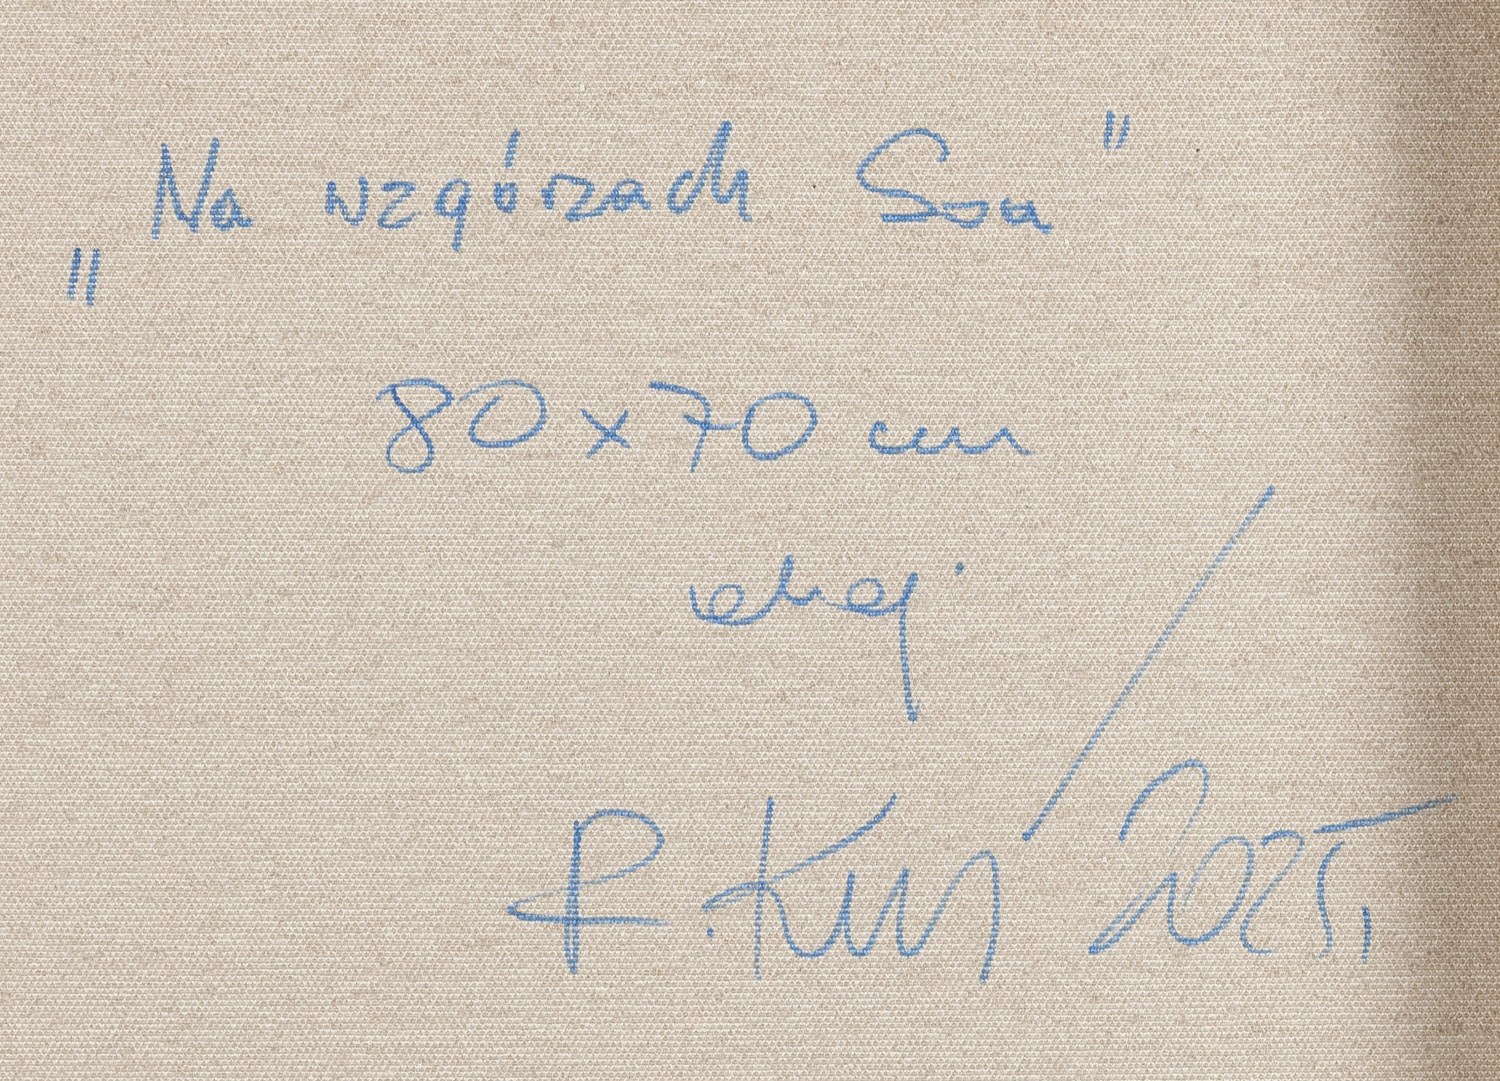 „Na wzgórzach Sou"
80x70 cm
olej
R. Kuś / 2025,